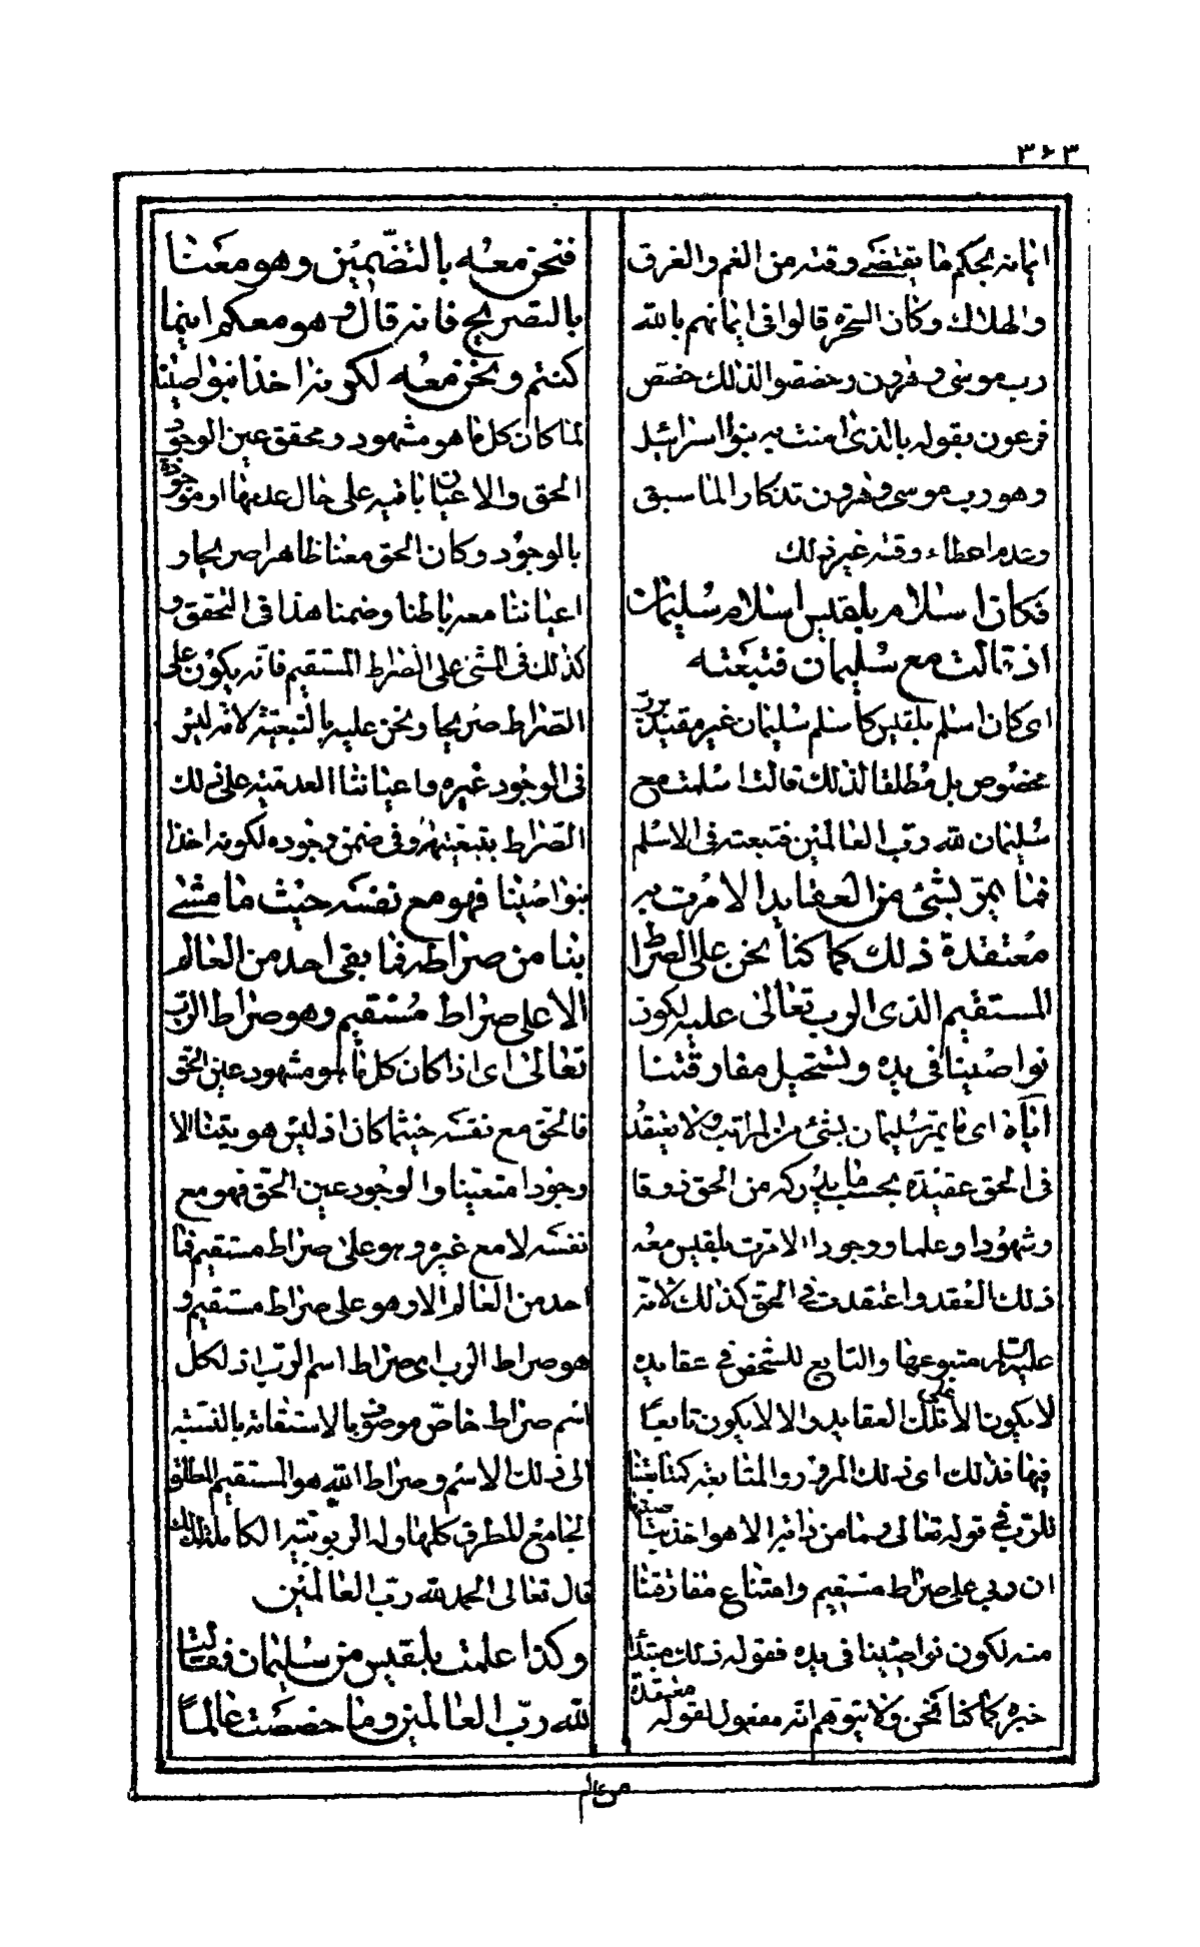 ٣٦٣
ايمانه بحكم ما يقتضى وقته من الغم والغرق
والهلاك وكان السحرة قالوا فى ايمانهم بالله
رب موسى وهرون وخصصوا لذلك خصص
فرعون بقوله بالذى امنت به بنوا اسرائيل
وهو رب موسى وهرون تذكارا لما سبق
وعدم اعطاء وقته غير ذلك
فكان اسلام بلقيس اسلام سليمان
اذ قالت مع سليمان فتبعته
اى كان اسلم بلقيس كاسلم سليمان غير مقيد برب
مخصوص بل مطلقا لذلك قالت اسلمت مع
سليمان لله رب العالمين فتبعته فى الاسلم
فما يمر بشئ من العقايد الا مرت به
معتقدة ذلك كما كنا نحن على الصراط
المستقيم الذى الرب تعالى عليه لكون
نواصينا فى يده ويستحيل مفارقتنا
اياه اى ما يمر سليمان بشئ من المراتب ولا يعتقد
فى الحق عقيدة بحسب ما يدركه من الحق ذوقا
وشهودا وعلما ووجودا الا مرت بلقيس معه
ذلك العقد واعتقدت فى الحق كذلك لانه
عليه السلام متبوعها والتابع للشخص فى عقايده
لا يكون الا على تلك العقايد والا لا يكون تابعا
فيها فذلك اى ذلك المرور والمتابعة كمتابعتنا
للرب فى قوله تعالى وما من دابة الا هو اخذ بناصيتها
ان ربى على صراط مستقيم وامتناع مفارقتنا
منه لكون نواصينا فى يده فقوله ذلك مبتدأ
خبره كما كنا نحن ولا يتوهم انه مفعول لقوله معتقدة
فنحن معه بالتضمين وهو معنا
بالتصريح فانه قال وهو معكم اينما
كنتم ونحن معه لكونه اخذا بنواصينا
لما كان كل ما هو مشهود ومحقق عين الوجود
الحق والاعيان باقية على حال عدمها او موجودة
بالوجود وكان الحق معنا ظاهرا صريحا و
اعياننا معه باطنا وضمنا هذا فى التحقق و
كذلك فى المشى على الصراط المستقيم فانه يكون على
الصراط صريحا ونحن عليه بالتبعية لانه ليس
فى الوجود غيره واعياننا العدمية على ذلك
الصراط بتبعيته وفى ضمن وجوده لكونه اخذا
بنواصينا فهو مع نفسه حيث ما مشى
بنا من صراطه فما بقى احد من العالم
الا على صراط مستقيم وهو صراط الرب
تعالى اى اذا كان كل ما هو مشهود عين الحق
فالحق مع نفسه حيثما كان اذ ليس هو يتنا الا
وجودا متعينا والوجود عين الحق فهو مع
نفسه لا مع غيره وهو على صراط مستقيم فما
احد من العالم الا وهو على صراط مستقيم و
هو صراط الرب اى صراط اسم الرب اذ لكل
اسم صراط خاص موصوف بالاستقامة بالنسبة
الى ذلك الاسم وصراط الله هو المستقيم المطلق
الجامع للطرق كلها وله الربوبية الكاملة لذلك
قال تعالى الحمد لله رب العالمين
وكذا علمت بلقيس من سليمان فقالت
لله رب العالمين وما خصصت عالما
من عالم